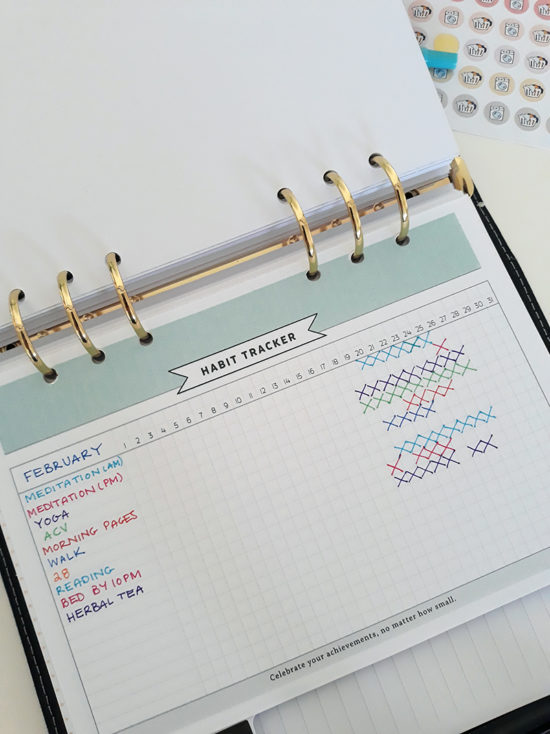 HABIT TRACKER
FEBRUARY 1 2 3 4 5 6 7 8 9 10 11 12 13 14 15 16 17 18 19 20 21 22 23 24 25 26 27 28 29 30 31
MEDITATION (AM)
MEDITATION (PM)
YOGA
ACV
MORNING PAGES
WALK
28
READING
BED BY 10PM
HERBAL TEA
Celebrate your achievements, no matter how small.